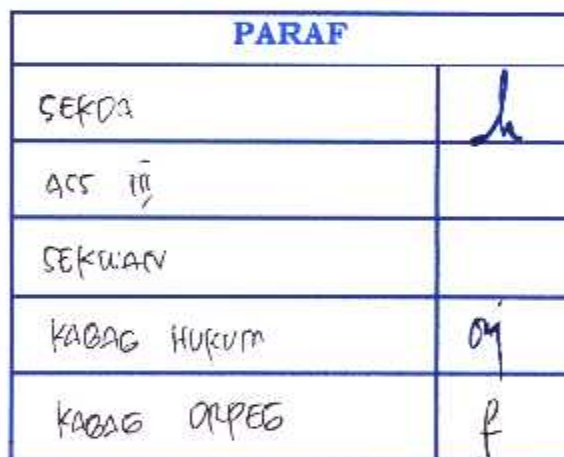 PARAF
SEKDA
ASS III
SEKWAN
KABAG HUKUM
KABAG ORPEG